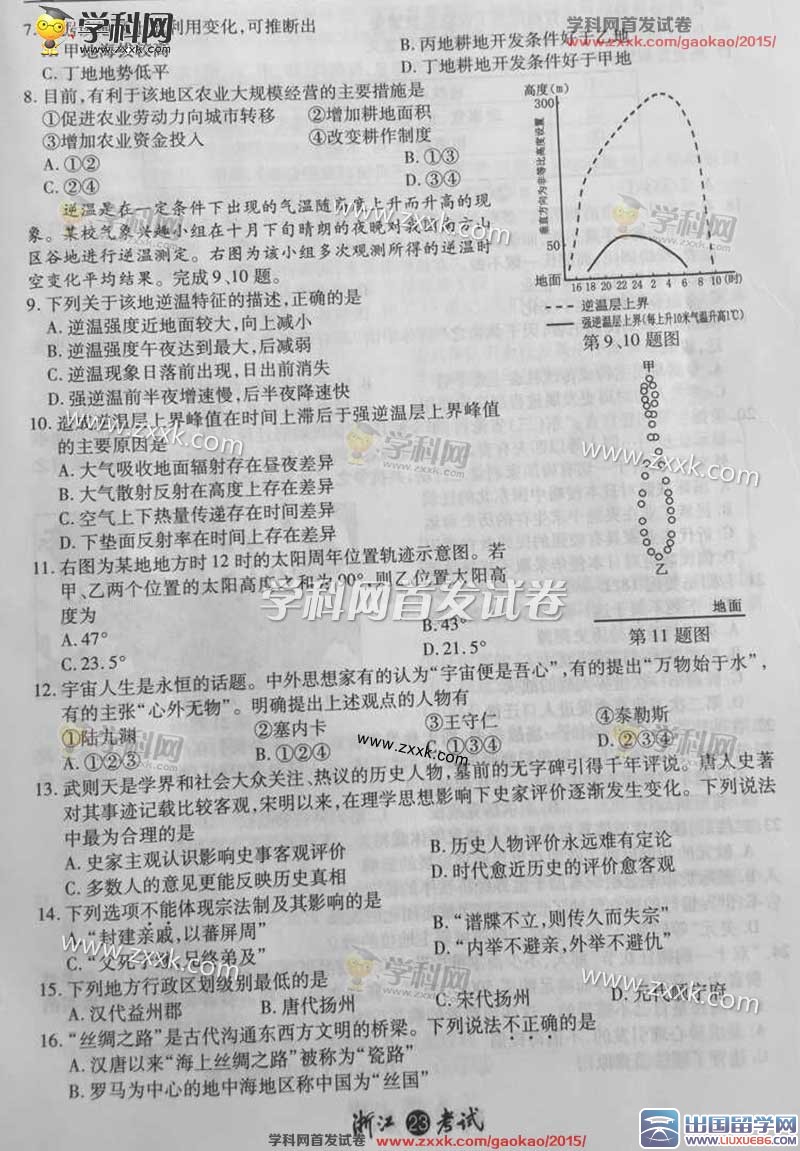 学科网首发试卷
www.zxxk.com/gaokao/2015/
学科网
利用变化,可推断出
B. 丙地耕地开发条件好于乙地
C. 丁地地势低平
D. 丁地耕地开发条件好于甲地
8. 目前,有利于该地区农业大规模经营的主要措施是
①促进农业劳动力向城市转移 ②增加耕地面积
③增加农业资金投入 ④改变耕作制度
A. ①② B. ①③
C. ②④ D. ③④
逆温是在一定条件下出现的气温随高度上升而升高的现
象。某校气象兴趣小组在十月下旬晴朗的夜晚对我国南方山
区谷地进行逆温测定。右图为该小组多次观测所得的逆温时
空变化平均结果。完成9、10题。
高度(m)
300
50
垂直方向为非等比高度设置
地面
16 18 20 22 24 2 4 6 8 10 (时)
逆温层上界
强逆温层上界(每上升10米气温升高1℃)
第9、10题图
9. 下列关于该地逆温特征的描述,正确的是
A. 逆温强度近地面较大,向上减小
B. 逆温强度午夜达到最大,后减弱
C. 逆温现象日落前出现,日出前消失
D. 强逆温前半夜增速慢,后半夜降速快
10. 造成逆温层上界峰值在时间上滞后于强逆温层上界峰值
的主要原因是
A. 大气吸收地面辐射存在昼夜差异
B. 大气散射反射在高度上存在差异
C. 空气上下热量传递存在时间差异
D. 下垫面反射率在时间上存在差异
甲
乙
地面
第11题图
11. 右图为某地地方时12时的太阳周年位置轨迹示意图。若
甲、乙两个位置的太阳高度之和为90°,则乙位置太阳高
度为
A. 47° B. 43°
C. 23.5° D. 21.5°
12. 宇宙人生是永恒的话题。中外思想家有的认为“宇宙便是吾心”,有的提出“万物始于水”,
有的主张“心外无物”。明确提出上述观点的人物有
①陆九渊 ②塞内卡 ③王守仁 ④泰勒斯
A. ①②③ B. ①②④ C. ①③④ D. ②③④
13. 武则天是学界和社会大众关注、热议的历史人物,墓前的无字碑引得千年评说。唐人史著
对其事迹记载比较客观,宋明以来,在理学思想影响下史家评价逐渐发生变化。下列说法
中最为合理的是
A. 史家主观认识影响史事客观评价 B. 历史人物评价永远难有定论
C. 多数人的意见更能反映历史真相 D. 时代愈近历史的评价愈客观
14. 下列选项不能体现宗法制及其影响的是
A. “封建亲戚,以蕃屏周” B. “谱牒不立,则传久而失宗”
C. “父死子继,兄终弟及” D. “内举不避亲,外举不避仇”
15. 下列地方行政区划级别最低的是
A. 汉代益州郡 B. 唐代扬州 C. 宋代扬州
16. “丝绸之路”是古代沟通东西方文明的桥梁。下列说法不正确的是
A. 汉唐以来“海上丝绸之路”被称为“瓷路”
B. 罗马为中心的地中海地区称中国为“丝国”
浙江 23 考试
学科网首发试卷 www.zxxk.com/gaokao/2015/
出国留学网
www.liuxue86.com